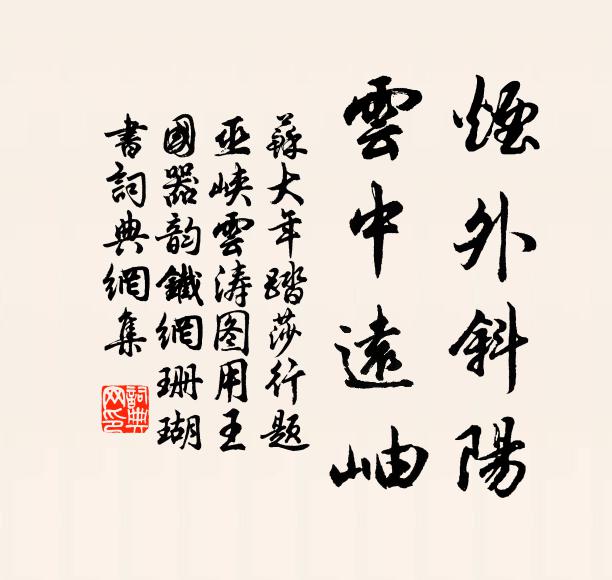 煙外斜陽
雲中遠岫
蘇大年踏莎行題
巫峽雲濤图用王
國器韵鐵網珊瑚
書詞典網集
詞典网印